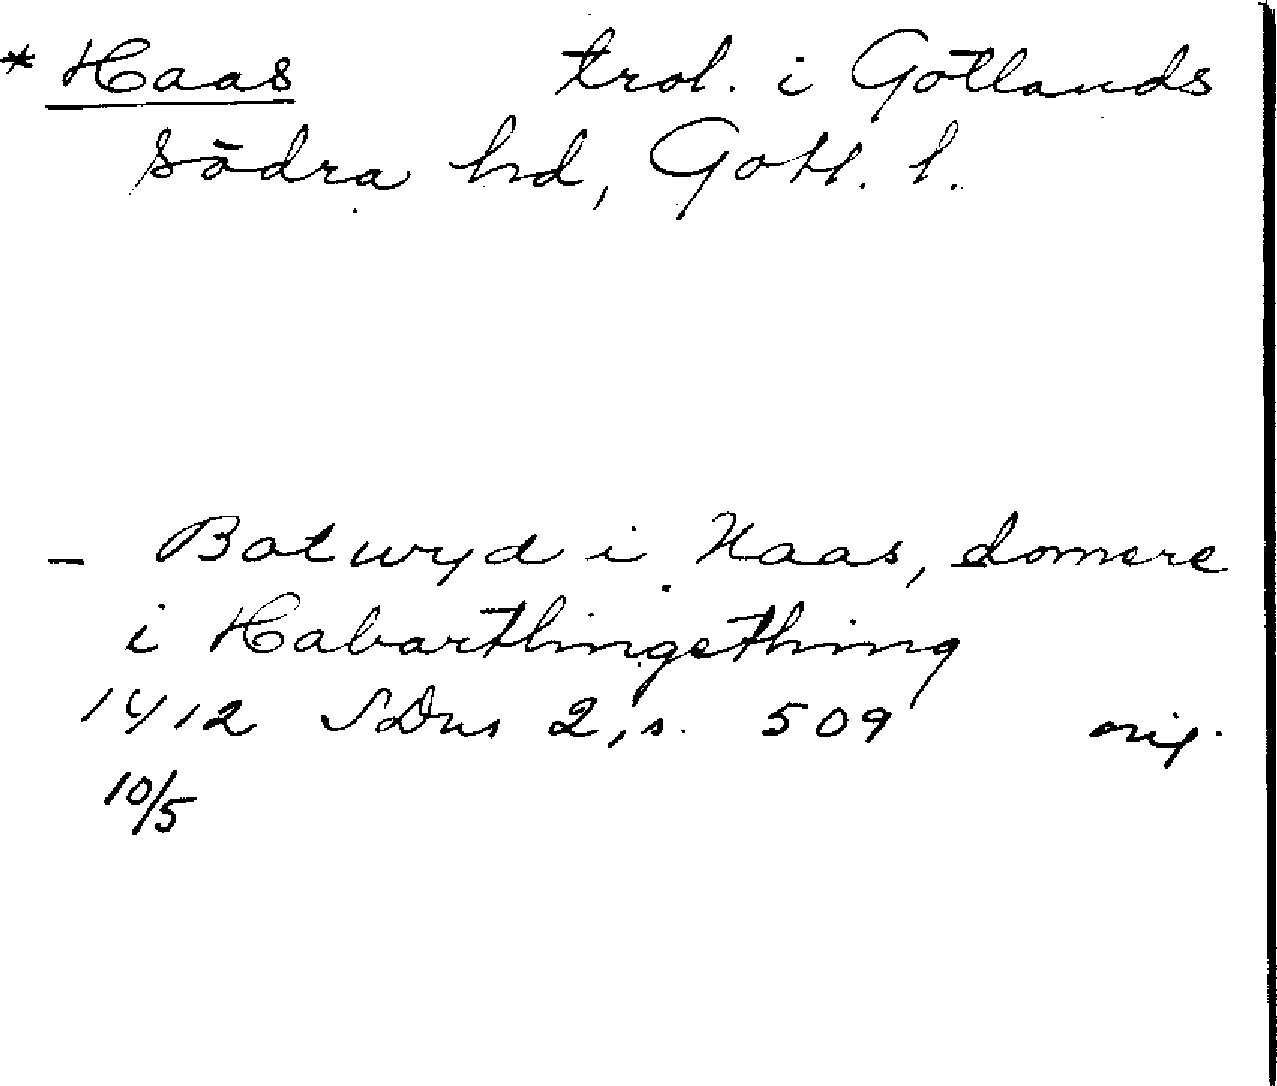 * Haas trol. i Gotlands
södra hd, Gotl. l.
– Botwyd i Haas, domere
i Habarthingething
1412 SDns 2, s. 509 orig.
10/5